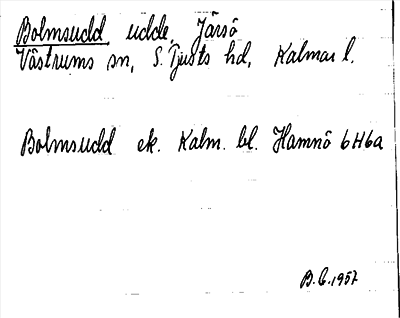 Bolmsudd, udde, Järsö
Västrums sn, S. Tjusts hd, Kalmar l.
Bolmsudd ek. Kalm. bl. Hamnö 6H6a
B.C. 1957